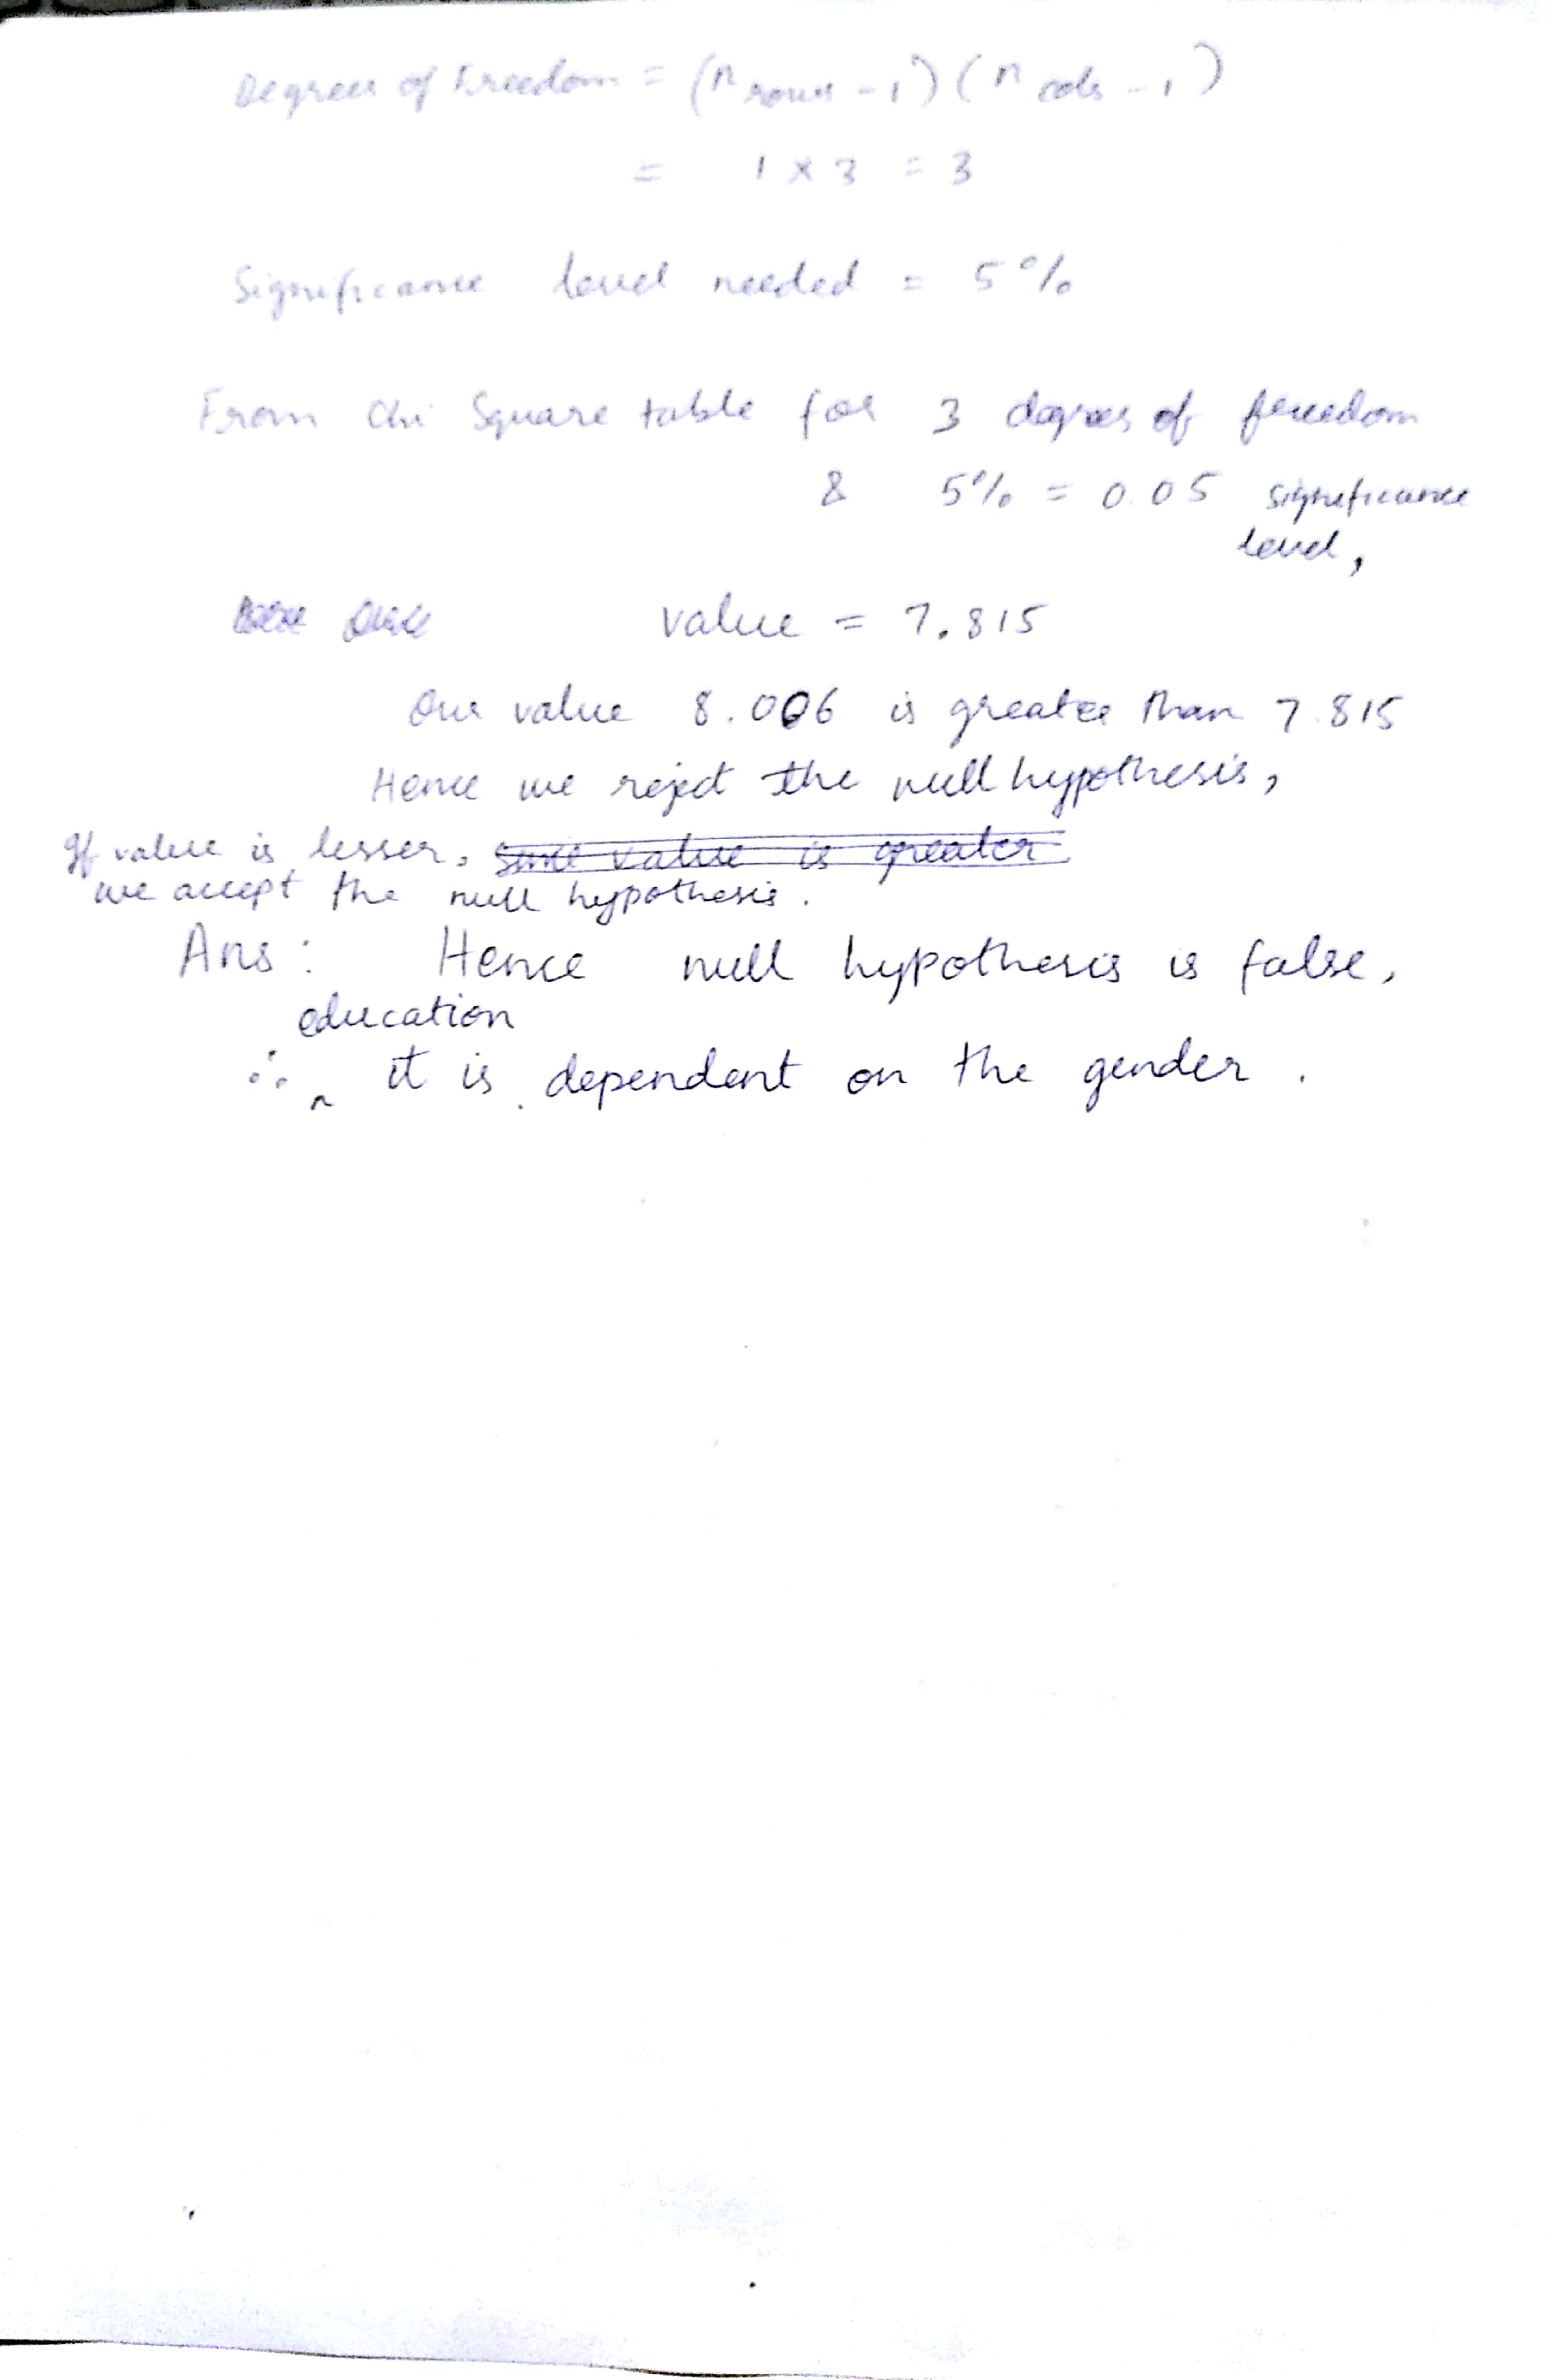 Degrees of Freedom = (n rows - 1) (n cols - 1)
= 1 × 3 = 3
Significance level needed = 5%
From Chi Square table for 3 degrees of freedom
& 5% = 0.05 significance
level,
value = 7.815
Our value 8.006 is greater than 7.815
Hence we reject the null hypothesis,
If value is lesser, since value is greater
we accept the null hypothesis.
Ans: Hence null hypothesis is false,
education
∴ ^ it is dependent on the gender.